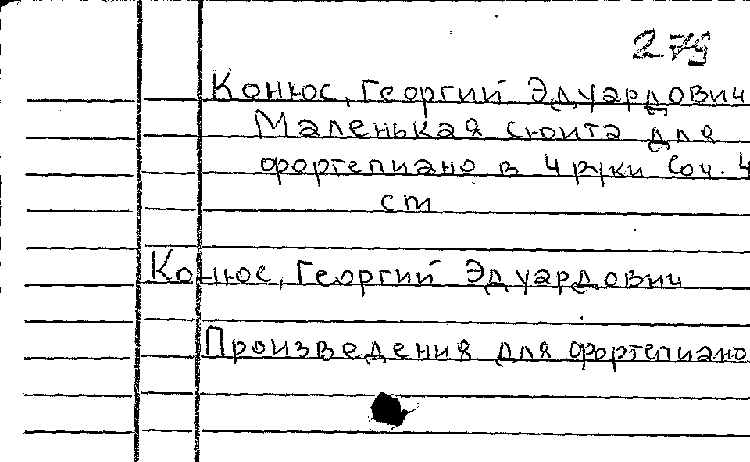 275
Конюс, Георгий Эдуардович
Маленькая сюита для
фортепиано в 4 руки Соч. 4
сти
Конюс, Георгий Эдуардович
Произведения для фортепиано